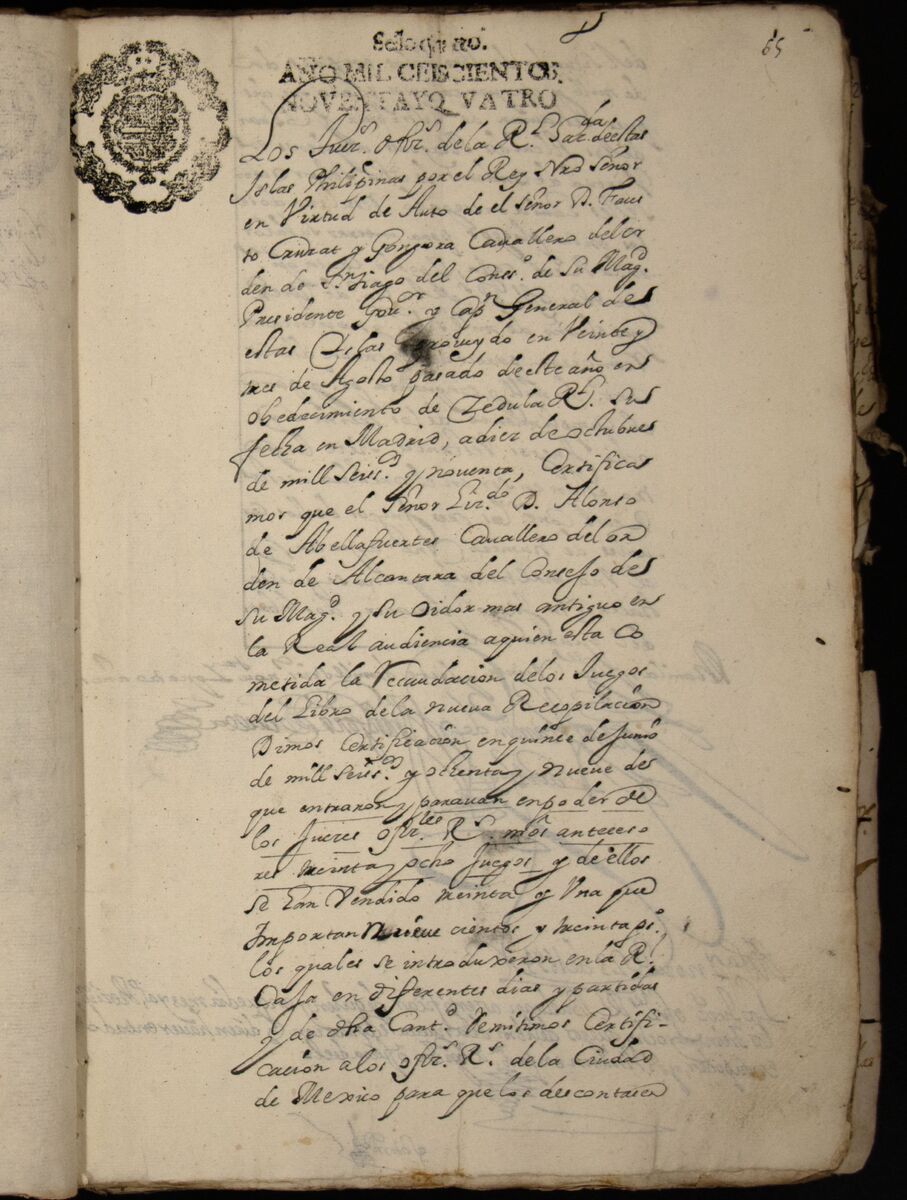 65
Sello quarto.
AÑO MIL CEISCIENTOS
NOVENTAYQVATRO
Los Juezs. ofirs. de la Rl. Hazda. de estas
Islas Philipinas por el Rey Nro Señor
en Virtud de Auto de el señor D. Faus
to Cruzat y Gongora Cavallero del or
den de Sntiago del Conso. de Su Magd.
Presidente Gour. y Capn General des
estas Yslas proueydo en Veinte y
tres de Agosto pasado de este año en
obedecimiento de Zedula Rl. su
fecha en Madrid, a diez de octubre
de mill Seissd. y nouenta, Certifica
mos que el Señor Lizdo. D. Alonso
de Abellafuertes Cauallero del or
den de Alcantara del Consejo de
Su Magd. y su oidor mas antiguo en
la Real audiencia aquien esta Co
metida la Recaudacion delos Juegos
del Libro dela nueva Recopilacion
Dimos Certificacion en quince de Junio
de mill Seissd. y ochenta y nueve de
que entraron y parauan en poder de
los Jueces ofirles. Rs. nros anteceso
res treinta y ocho Juegos y de ellos
se han Vendido treinta y Una que
Importan Nueve cientos y treinta ps.
los quales se introduxeron en la Rl.
Caja en diferentes dias y partidas
y de dha Cantd. Remitimos Certifi-
cacion alos ofirs. Rs. de la Ciudad
de Mexico para que los descontasen